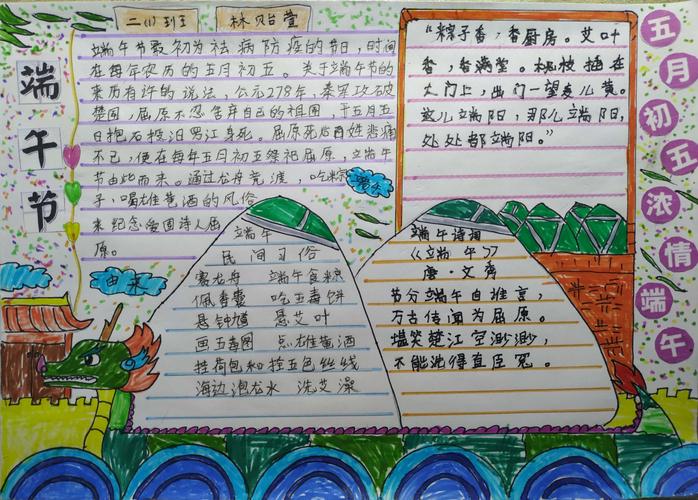 二(1)班
林贻萱
端午节
端午节最初为祛病防疾的节日，时间
在每年农历的五月初五。关于端午节的
来历有许的说法，公元278年，秦军攻破
楚国，屈原不忍舍弃自己的祖国，于五月五
日抱石投汨罗江身死。屈原死后百姓悲痛
不已，便在每年五月初五祭祀屈原，立端午
节由此而来。通过龙舟竞渡，吃粽
子，喝雄黄酒的风俗
来纪念爱国诗人屈
原。
端午
由来
“粽子香，香厨房。艾叶
香，香满堂。桃枝插在
大门上，出门一望麦儿黄。
这儿端阳，那儿端阳，
处处都端阳。”
五月初五浓情端午
端午
民间习俗
赛龙舟 端午食粽
佩香囊 吃五毒饼
悬钟馗 悬艾叶
画五毒图 点雄黄酒
挂荷包和拴五色丝线
海边泡龙水 洗艾澡
端午诗词
《端午》
唐·文秀
节分端午自谁言，
万古传闻为屈原。
堪笑楚江空渺渺，
不能洗得直臣冤。